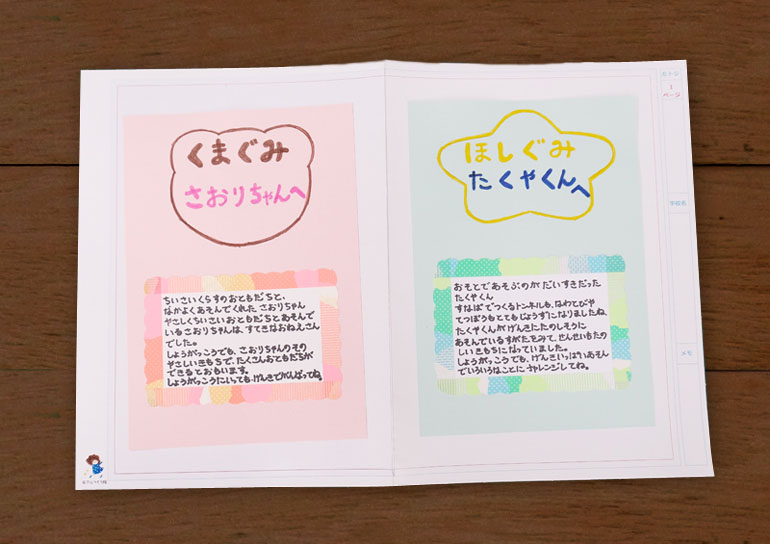 くまぐみ
さおりちゃんへ
ちいさいくらすのおともだちと、
なかよくあそんでくれた さおりちゃん
やさしくちいさいおともだちとあそんで
いるさおりちゃんは、すてきなおねえさん
でした。
しょうがっこうでも、さおりちゃんのその
やさしいきもちで、たくさんおともだちが
できるとおもいます。
しょうがっこうにいっても、げんきでがんばってね。
ほしぐみ
たくやくんへ
おそとであそぶのが だいすきだった
たくやくん
すなばでつくるトンネルも、なわとびや
てつぼうもとても じょうずになりましたね。
たくやくんがげんきにたのしそうに
あそんでいるすがたをみて、せんせいもたの
しいきもちになっていました。
しょうがっこうでも、げんきいっぱいあそん
でいろいろなことに チャレンジしてね。
1
ページ
学校名
メモ